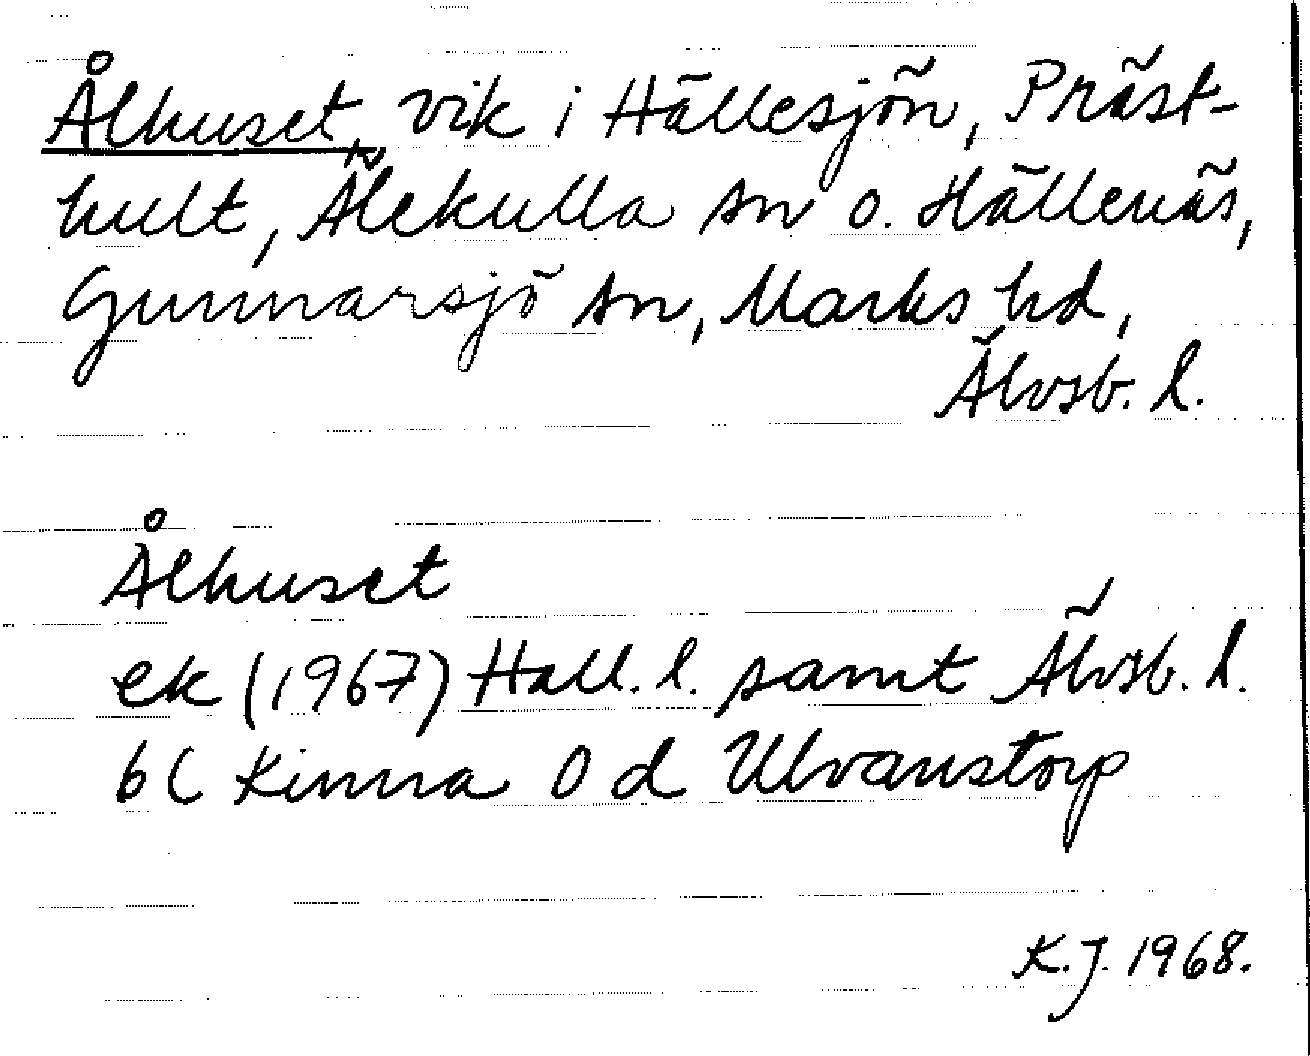 Ålhuset, vik i Hällesjön, Präst-
hult, Älekulla sn o. Hällenäs,
Gunnarsjö sn, Marks hd,
Älvsb. l.
Ålhuset
ek (1967) Hall. l. samt Älvsb. l.
6C Kinna 0 d Ulvanstorp
K.J. 1968.